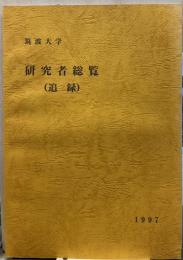 筑波大学
研究者総覧
(追録)
1997